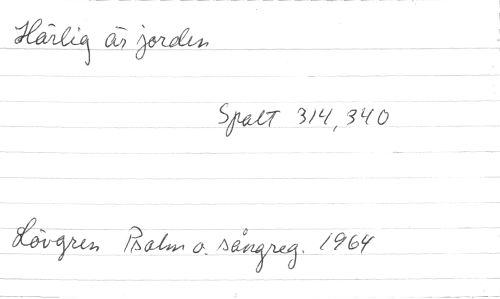 Härlig är jorden
Spalt 314, 340
Lövgren Psalm o. sångreg. 1964